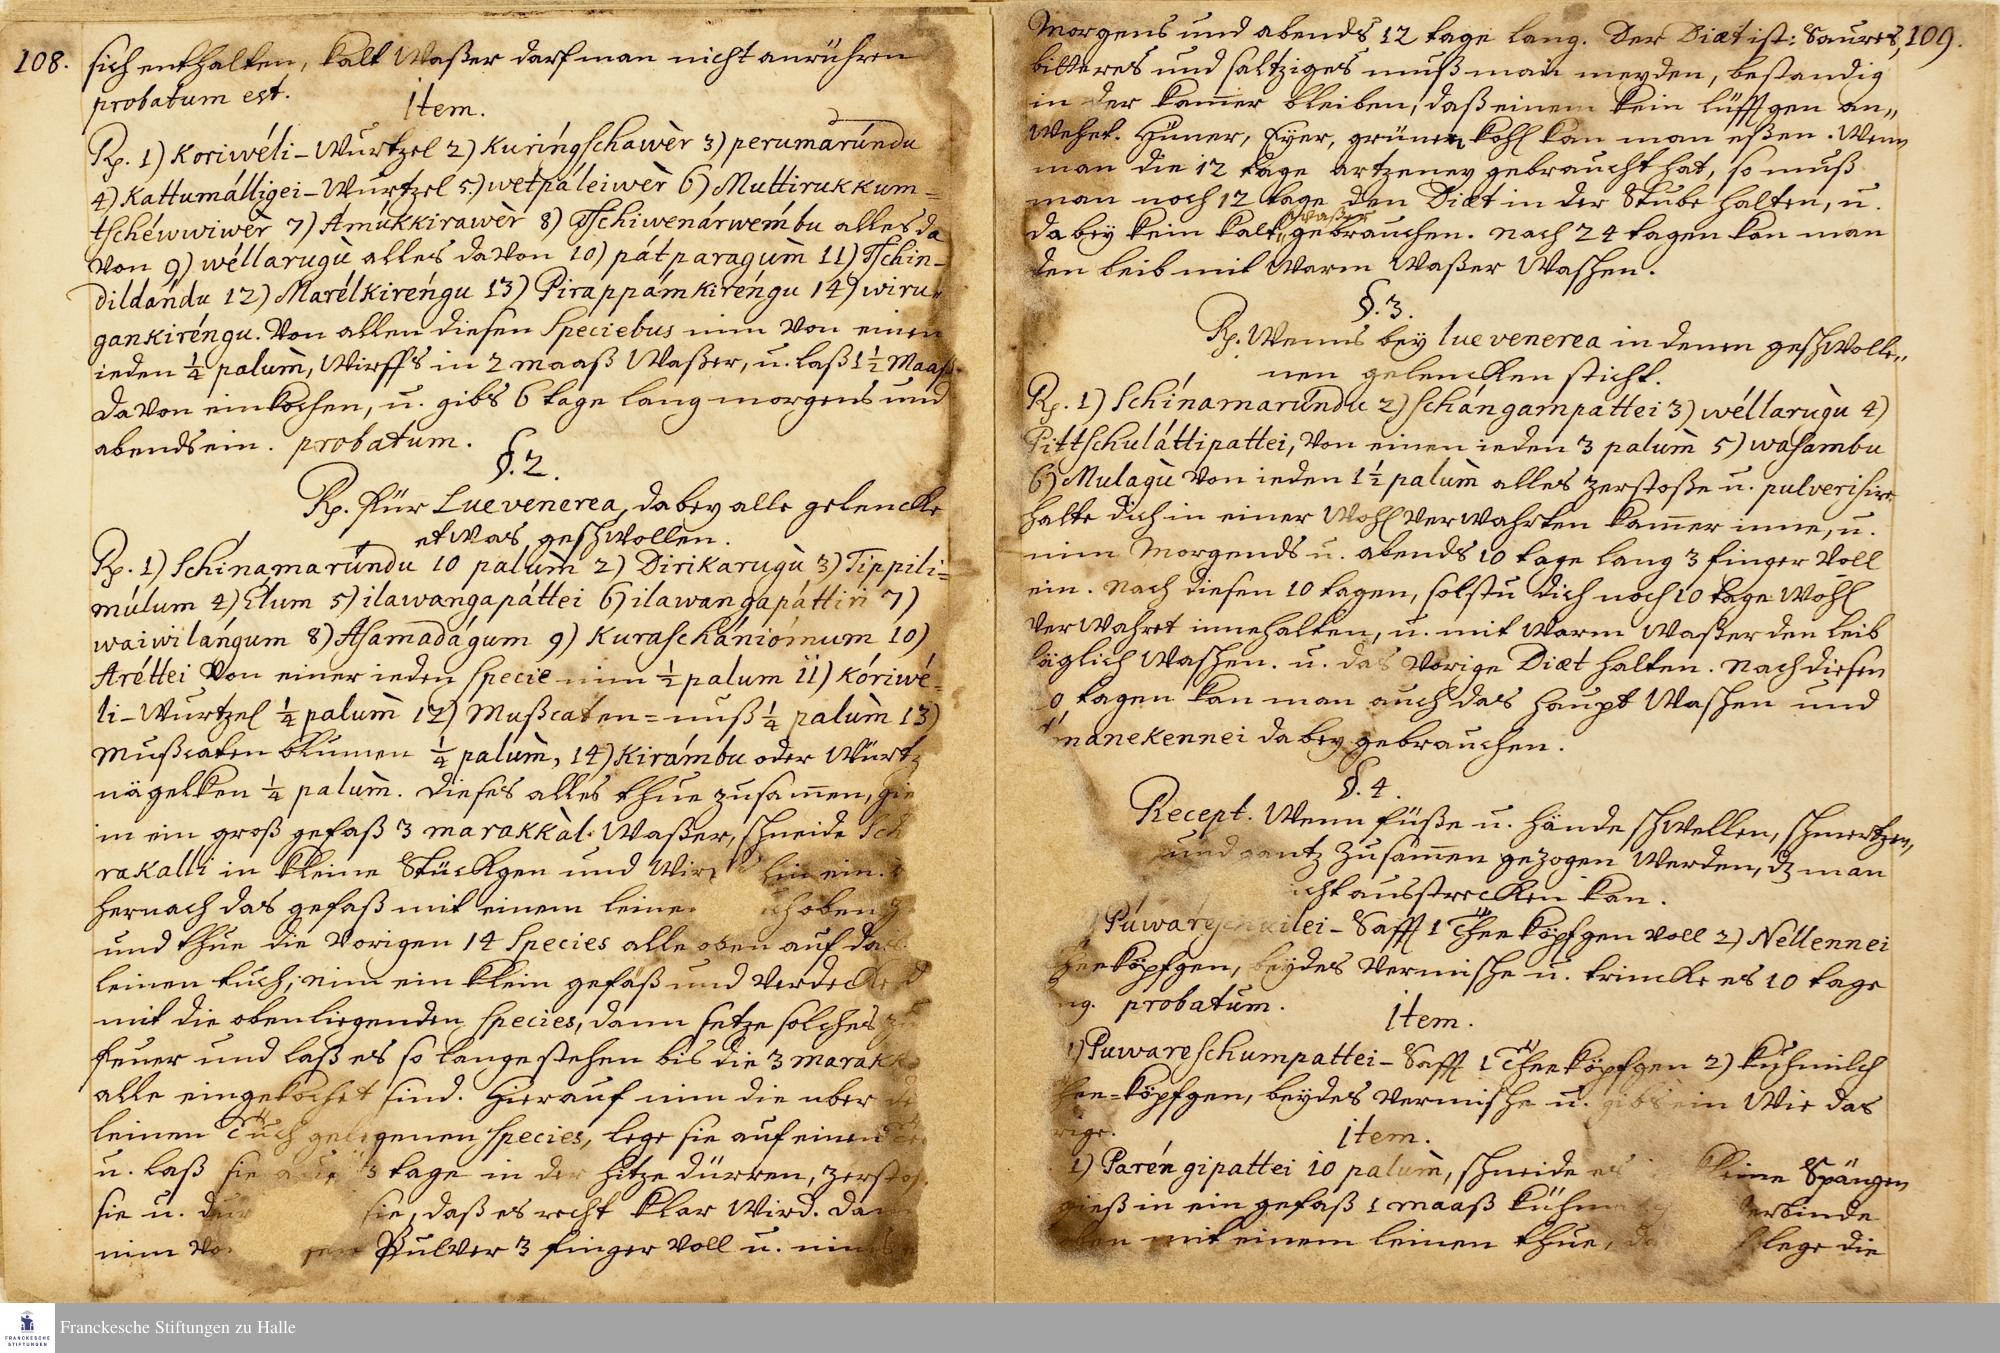 108.
sich enthalten, kalt Waßer darf man nicht anrühren
probatum est.
Item.
Rp. 1) Koriwéli-Wurtzel 2) Kuringschawèr 3) perumarúndu
4) Kattumálligei-Wurtzel 5) wétpáleiwèr 6) Muttirukkum=
tschéwwiwèr 7) Amúkkirawèr 8) Tschiwenárwémbu alles da
von 9) wéllarugù alles davon 10) pátparagum̀ 11) Tschin-
dildándu 12) Marélkiréngu 13) Pirappámkiréngu 14) wiru=
gankiréngu. Von allen diesen Speciebus nim von einen
ieden ¼ palum̀, Wirffs in 2 maaß Waßer, u. laß 1½ Maaß
davon einkochen, u. gibs 6 tage lang morgens und
abends ein. probatum.
§. 2.
Rp. für Lue venerea, dabey alle gelencke
etwas geschwollen.
Rp. 1) Schinamarúndu 10 palum̀ 2) Dirikarugù 3) Tippili=
múlum 4) Élum 5) ilawangapáttei 6) ilawangapáttiri 7)
waiwilángum 8) Asamadágum 9) Kuraschániómum 10)
Aréttei Von einer ieden Specie nim ½ palum 11) kóriwé=
li-Wurtzel ¼ palum̀ 12) Mußcaten=nuß ¼ palum̀ 13)
Mußcaten blumen ¼ palum̀, 14) Kirámbu oder Würtz
nägelken ¼ palum̀. Dieses alles thue zusamen,
in ein groß gefäß 3 marakkàl Waßer, schneide
rakalli in kleine Stückgen und hinein.
hernach das gefäß mit einem oben
und thue die vorigen 14 Species alle oben auf
leinen tuch; nim ein klein gefäß und verdecke
mit die obenliegenden Species, dann setze solches
feuer und laß es so lange stehen bis die 3
alle eingekochet sind. Hierauf nim die uber
leinen Tuch gelegenen Species, lege sie auf einen
u. laß sie tage in der hitze dürren,
sie u. sie, daß es recht klar wird.
nim Pulver 3 finger voll u.
109.
Morgens und abends 12 tage lang. Der Diæt ist: Saures,
bitteres und saltziges muß man meyden, bestandig
in der kamer bleiben, daß einem kein lüfftgen an„
wehet. Hüner, Eyer, grünen kohl kan man eßen. Wenn
man die 12 tage artzeney gebraucht hat, so muß
man noch 12 tage den Diæt in der Stube halten, u.
dabey kein kalt Waßer gebrauchen. nach 24 tagen kan man
den leib mit warm Waßer waschen.
§. 3.
Rp. Wenns bey lue venerea in denen geschwolle„
nen gelencken sticht.
Rp. 1) Schínamarúndu 2) Schángampattei 3) wéllarugù 4)
Pittschuláttipattei, von einen ieden 3 palum̀ 5) wasambu
6) Mulagù von ieden 1½ palum̀ alles zerstoße u. pulverisire
halte dich in einer wohl verwahrten kamer inne, u.
nim Morgends u. abends 10 tage lang 3 finger voll
ein. nach diesen 10 tagen, solstu dich noch 10 tage wohl
verwahret innehalten, u. mit warm Waßer den leib
täglich waschen. u. das vorige Diæt halten. nach diesen
tagen kan man auch das haupt waschen und
dabey gebrauchen.
§. 4.
Recept. Wenn füße u. hände schwellen, schmertzen,
und gantz zusamen gezogen werden, dz man
ausstrecken kan.
Safft 1 Theeköpfgen voll 2) Nellennei
Theeköpfgen, beydes vermische u. trincke es 10 tage
probatum.
Item.
1) Puwareschumpattei-Safft 1 Theeköpfgen 2) kühmilch
Thee=köpfgen, beydes vermische u. gibs ein wie das
Item.
1) Paréngipattei 10 palum̀, schneide kleine Spängen
gieß in ein gefäß 1 maaß verbinde
mit einem leinen lege die
FRANCKESCHE STIFTUNGEN
Franckesche Stiftungen zu Halle